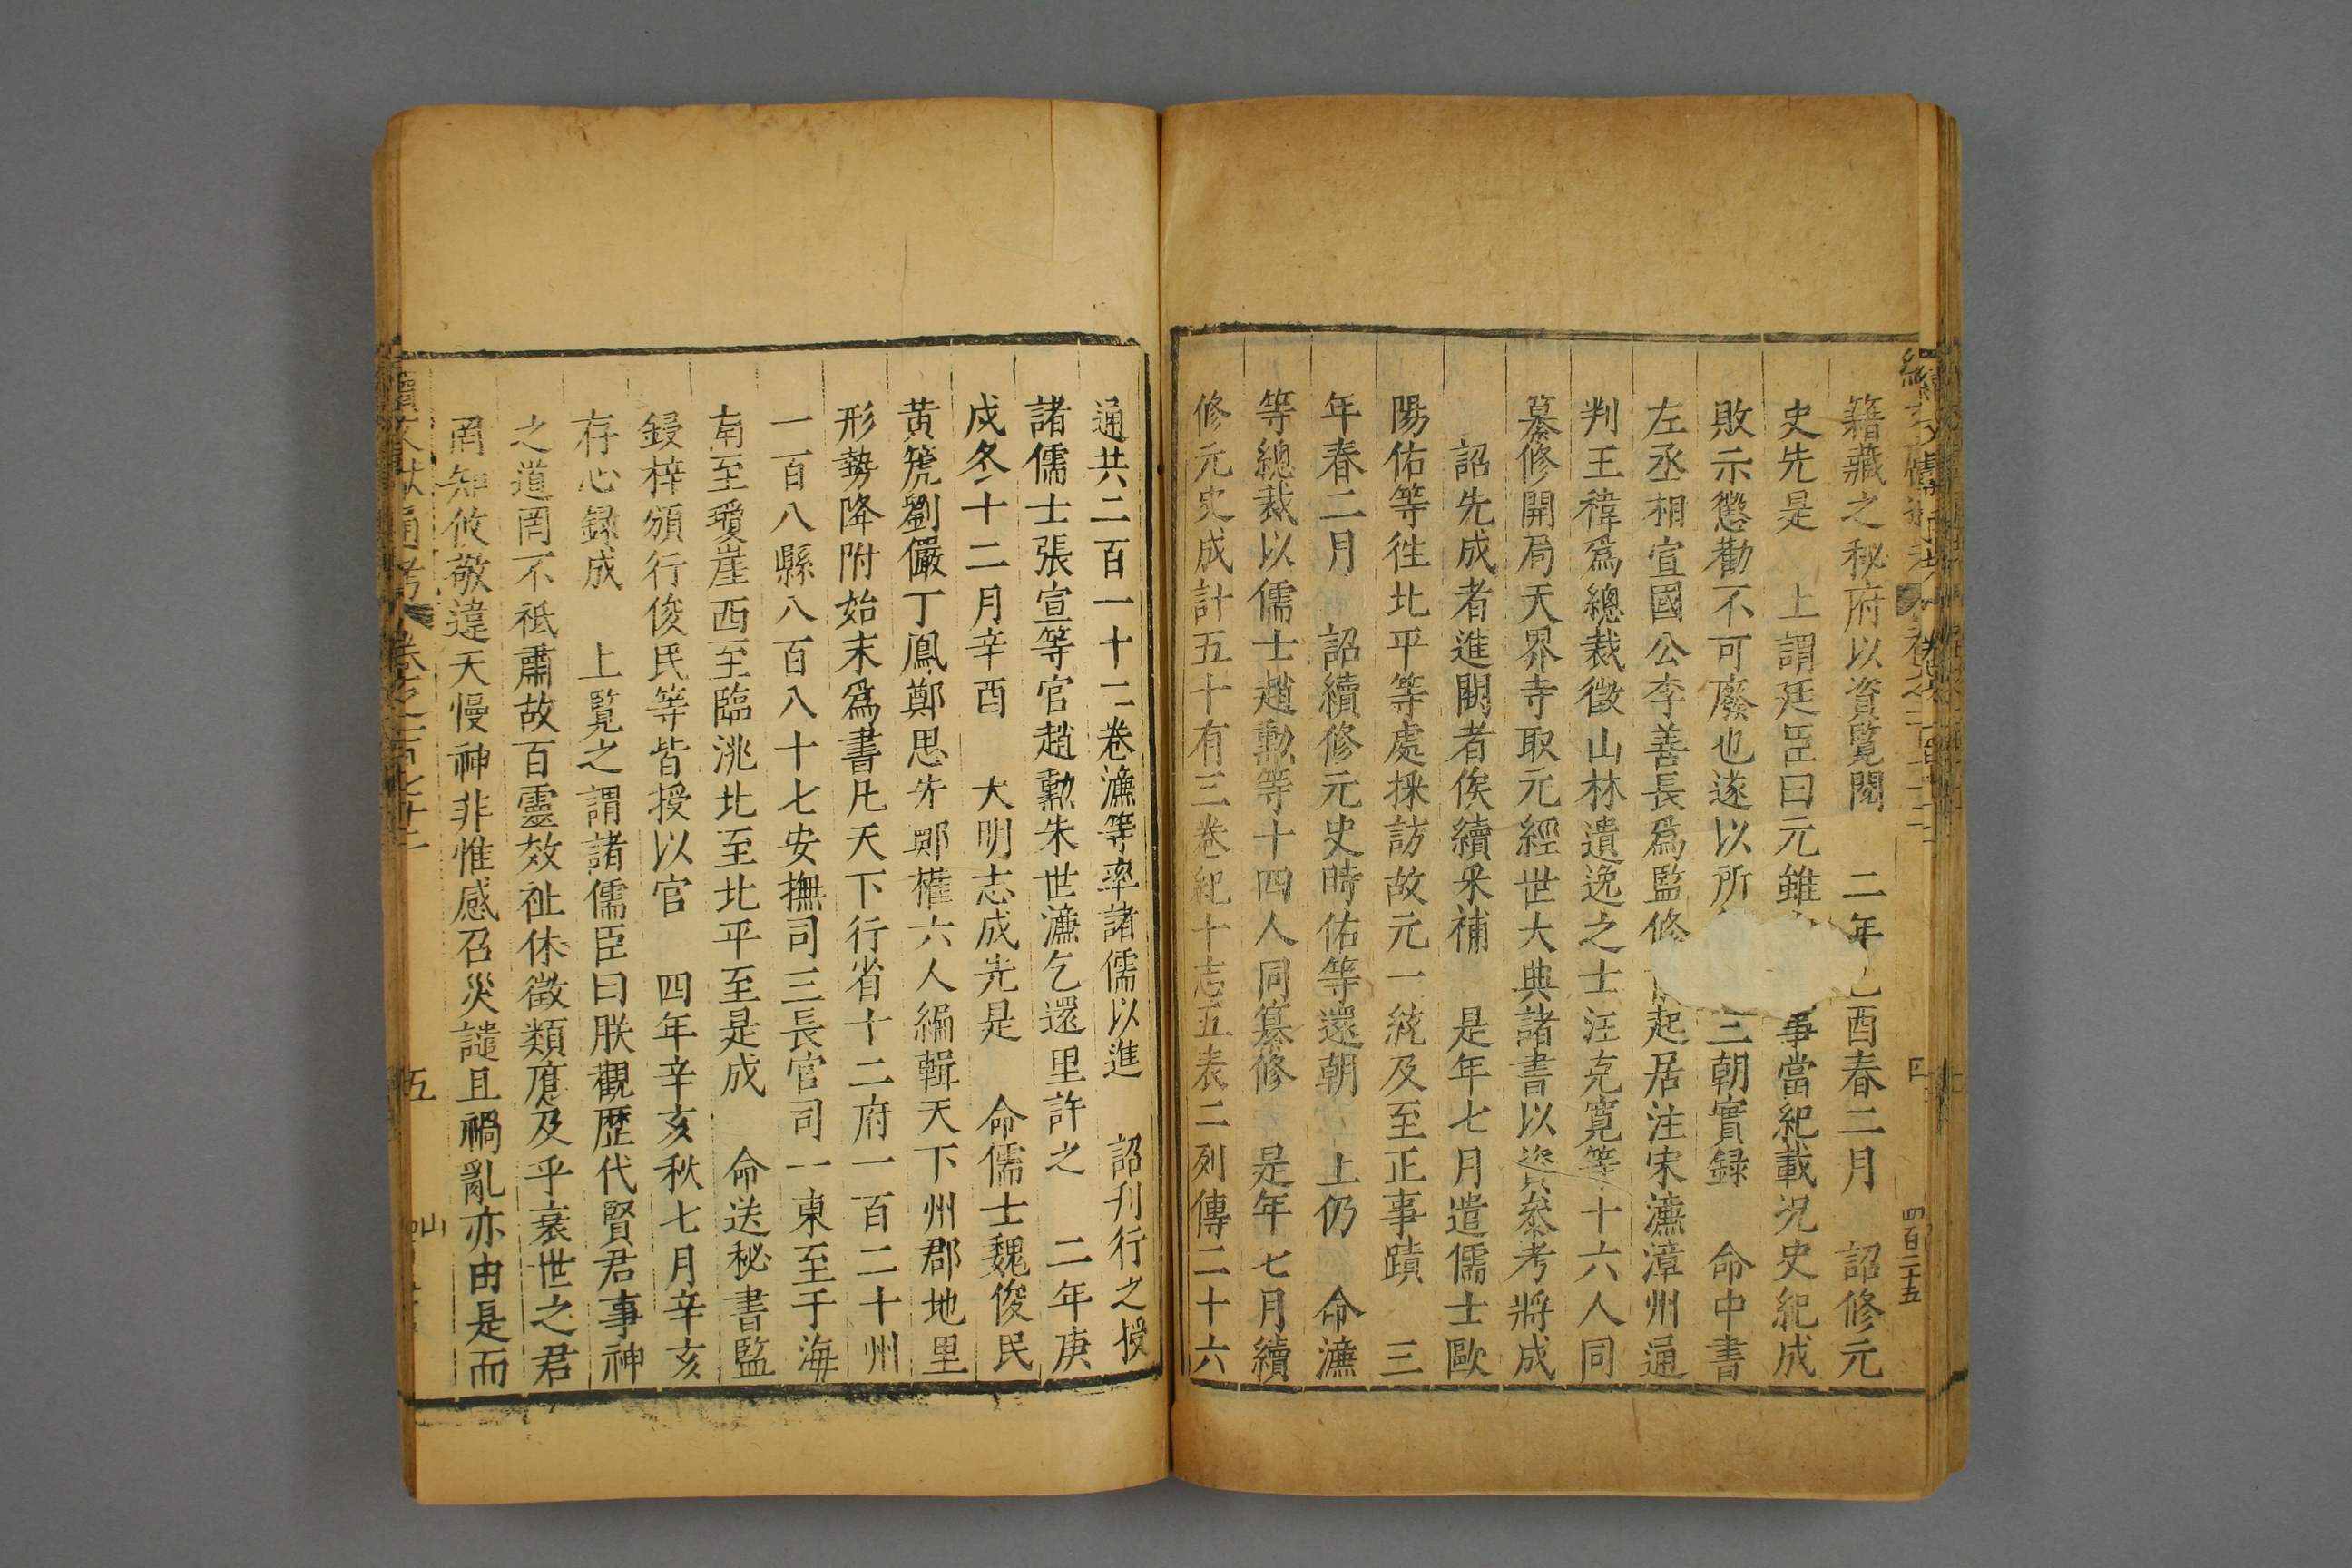 籍藏之秘府以資覽閱 二年 酉春二月 詔修元
史先是 上謂廷臣曰元雖 事當紀載況史紀成
敗示懲勸不可廢也遂以所 三朝實録 命中書
左丞相宣國公李善長爲監修 起居注宋濂漳州通
判王禕爲總裁徵山林遺逸之士汪克寛等十六人同
纂修開局天界寺取元經世大典諸書以資叅考將成
詔先成者進闕者俟續采補 是年七月遣儒士歐
陽佑等徃北平等處採訪故元一統及至正事蹟 三
年春二月 詔續修元史時佑等還朝 上仍 命濂
等總裁以儒士趙勳等十四人同纂修 是年七月續
修元史成計五十有三卷紀十志五表二列傳二十六
通共二百一十二卷濂等率諸儒以進 詔刋行之授
諸儒士張宣等官趙勳朱世濂乞還里許之 二年庚
戍冬十二月辛酉 大明志成先是 命儒士魏俊民
黄箎劉儼丁鳳鄭思先鄭權六人編輯天下州郡地里
形勢降附始末爲書凡天下行省十二府一百二十州
一百八縣八百八十七安撫司三長官司一東至于海
南至瓊崖西至臨洮北至北平至是成 命送秘書監
鋟梓頒行俊民等皆授以官 四年辛亥秋七月辛亥
存心録成 上覽之謂諸儒臣曰朕觀歷代賢君事神
之道罔不祗肅故百靈效祉休徵類應及乎衰世之君
罔知攸敬違天慢神非惟感召災譴且禍亂亦由是而
五